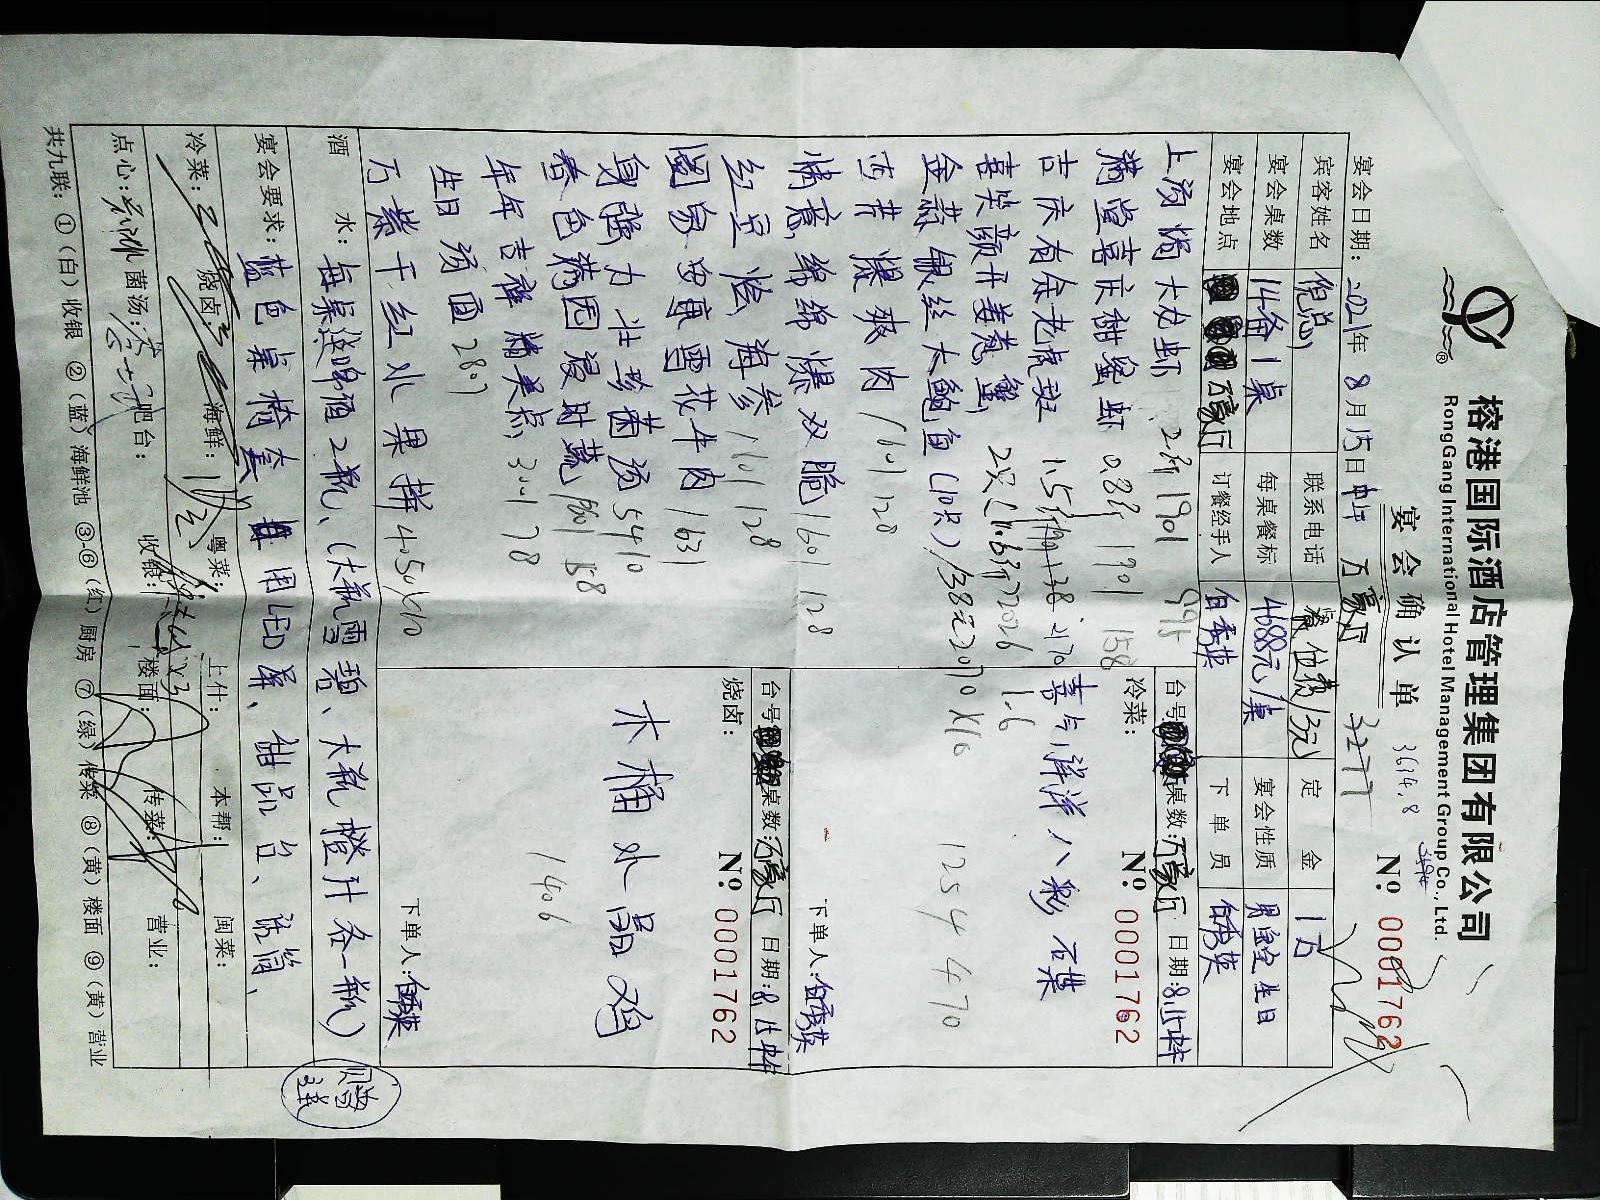 榕港国际酒店管理集团有限公司
RongGang International Hotel Management Group Co., Ltd.
宴会确认单
3634.8
№ 0001762
宴会日期：2021年 8月15日 中午 万豪厅 3277
宾客姓名 倪总 联系电话 餐位费/3元 定金 1万
宴会桌数 14备1桌 每桌餐标 4688元/桌 宴会性质 男宝宝生日
宴会地点 万豪厅 订餐经手人 白秀英 下单员 白秀英
上汤焗大龙虾 2.8斤 1901 995
满堂喜庆甜蜜虾 0.8斤 1901 158
吉庆有余老虎斑 1.5斤
喜笑颜开姜葱蟹 2只
金蒜银丝大鲍鱼（10只）/38元
莎茸爆爽肉 1601 128
情意绵绵爆双脆 1601 128
红豆烩海参 1101 128
国泰安康雪花牛肉 1631
身强力壮珍菌汤 5410
春色满园浸时蔬 58
年年吉祥精美点 3001 78
生日汤面 2807
万紫千红水果拼 4050
台号 桌数：万豪厅 日期：8.15中午
冷菜：
№ 0001762
喜气洋洋八彩石碟
1254 470
下单人：白秀英
台号 桌数：万豪厅 日期：8.15中午
烧卤：
№ 0001762
木桶水晶鸡
1406
下单人：白秀英
酒水：每桌送啤酒2瓶、（大瓶雪碧、大瓶橙汁各一瓶）
宴会要求：蓝色桌椅套 用LED屏、甜品台、话筒，
赠送
冷菜： 烧卤： 海鲜： 粤菜： 上什： 本帮： 闽菜：
点心： 菌汤： 吧台： 收银： 楼面： 传菜： 营业：
共九联：①（白）收银 ②（蓝）海鲜池 ③-⑥（红）厨房 ⑦（绿）传菜 ⑧（黄）楼面 ⑨（黄）营业